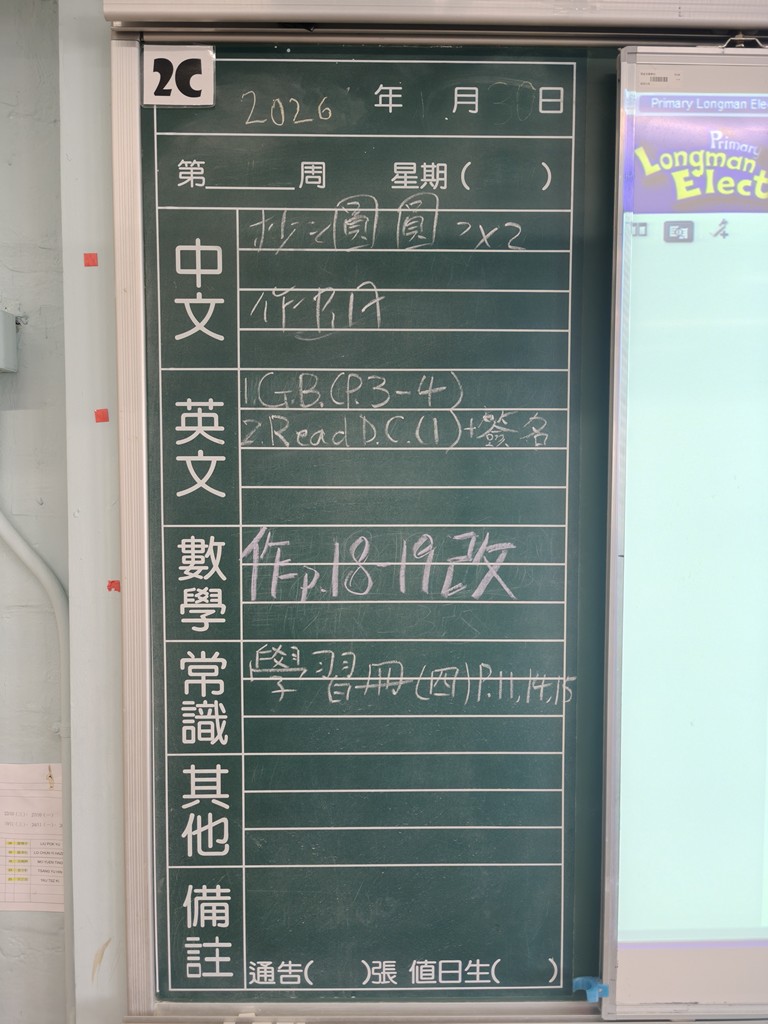 2C
2026 年 月 30 日
第______周 星期( )
中文
抄:圓圓 ×2
作P.17
英文
1.G.B.(P.3-4)
2.Read D.C.(1)+簽名
數學
作p.18-19改
常識
學習冊(四)P.11,14,15
其他
備註
通告( )張 值日生( )
Primary Longman Ele
Primary
Longman
Elect